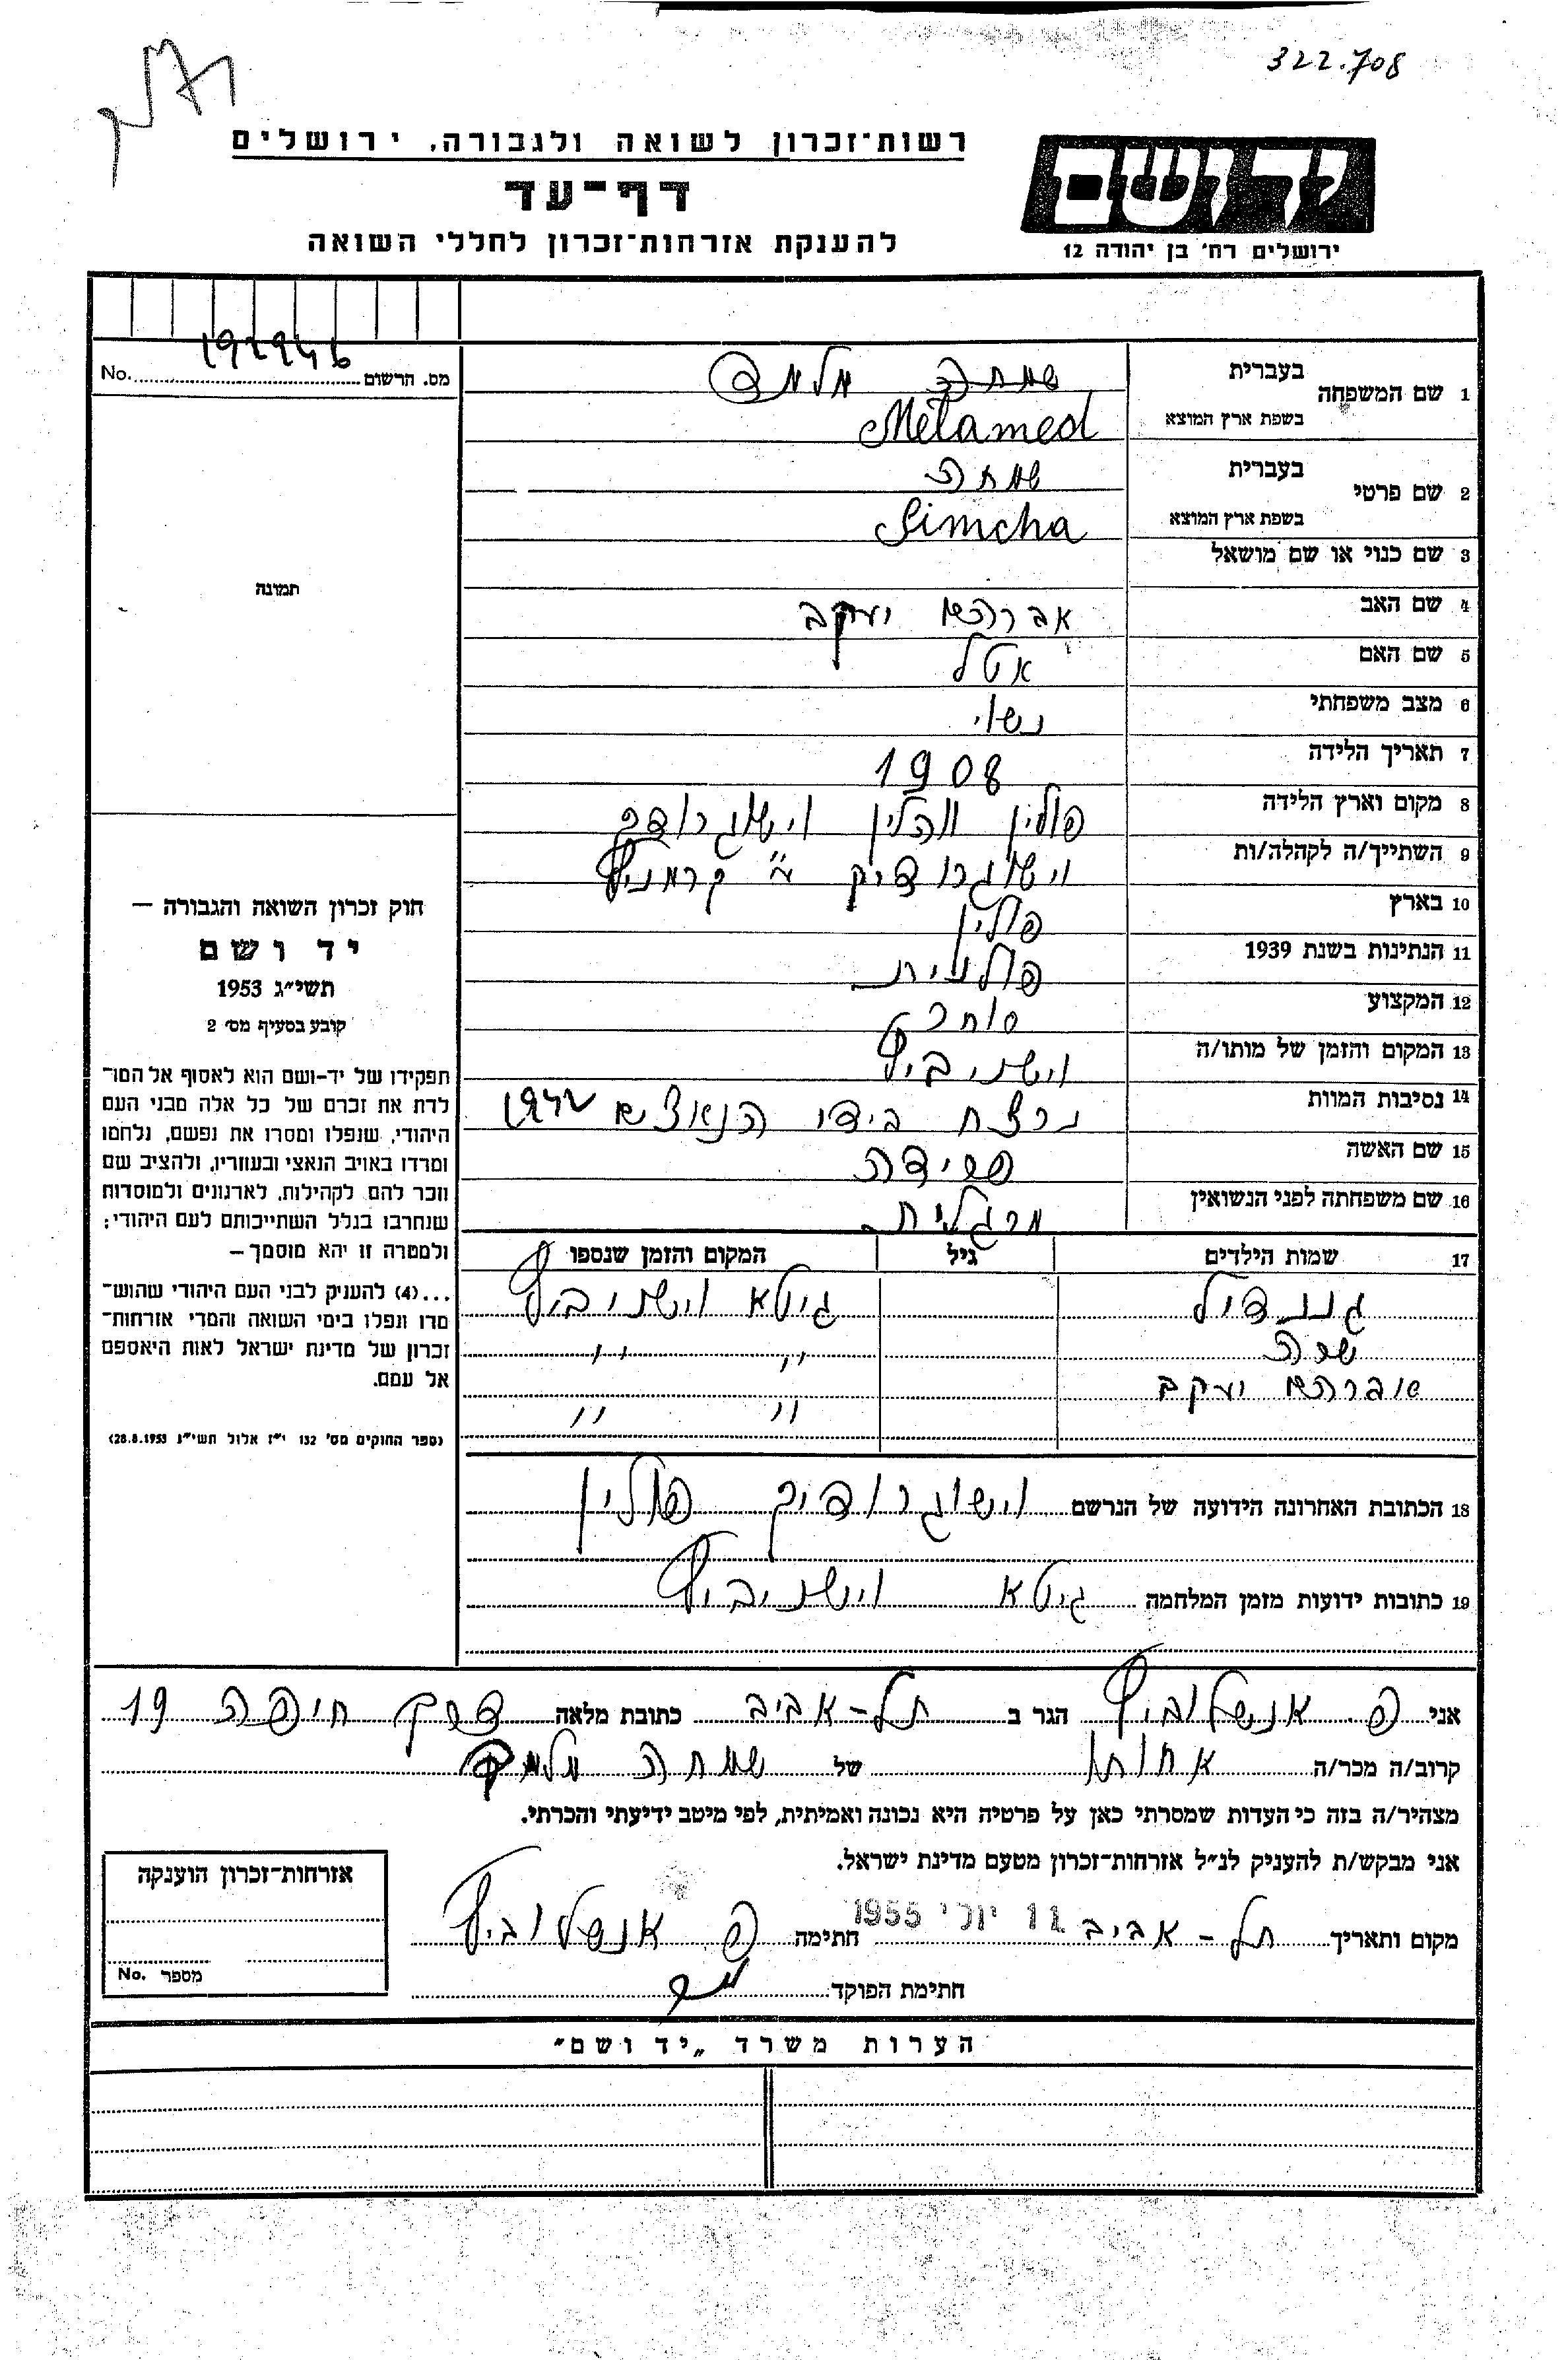 322.708
רשות־זכרון לשואה ולגבורה, ירושלים
דף־עד
להענקת אזרחות־זכרון לחללי השואה
יד ושם
ירושלים רח׳ בן יהודה 12
No. מס. הרשום
1 שם המשפחה בעברית שמחה מלמד
בשפת ארץ המוצא Melamed
2 שם פרטי בעברית שמחה
בשפת ארץ המוצא Simcha
3 שם כנוי או שם מושאל
4 שם האב אברהם יעקב
5 שם האם אטל
6 מצב משפחתי נשוי
7 תאריך הלידה 1908
8 מקום וארץ הלידה פולין ווהלין
9 השתייך/ה לקהלה/ות וישוגרודיק
10 בארץ פולין
11 הנתינות בשנת 1939 פולנית
12 המקצוע סוחר
13 המקום והזמן של מותו/ה וישניביץ
14 נסיבות המוות נרצח בידי הנאצים 1942
15 שם האשה פרידה
16 שם משפחתה לפני הנשואין מרגלית
17 שמות הילדים גיל המקום והזמן שנספו
גנדיל גיטא וישניביץ
שרה " "
אברהם יעקב " "
18 הכתובת האחרונה הידועה של הנרשם וישוגרודיק פולין
19 כתובות ידועות מזמן המלחמה גיטא וישניביץ
תמונה
חוק זכרון השואה והגבורה —
יד ושם
תשי״ג 1953
קובע בסעיף מס׳ 2
תפקידו של יד-ושם הוא לאסוף אל המו־
לדת את זכרם של כל אלה מבני העם
היהודי, שנפלו ומסרו את נפשם, נלחמו
ומרדו באויב הנאצי ובעוזריו, ולהציב שם
וזכר להם, לקהילות, לארגונים ולמוסדות
שנחרבו בגלל השתייכותם לעם היהודי;
ולמטרה זו יהא מוסמך —
...(4) להעניק לבני העם היהודי שהוש־
מדו ונפלו בימי השואה והמרי אזרחות־
זכרון של מדינת ישראל לאות היאספם
אל עמם.
(ספר החוקים מס׳ 132 י״ז אלול תשי״ג 28.8.1953)
אני פ. אנשלוביץ הגר ב תל-אביב כתובת מלאה דרך חיפה 19
קרוב/ה מכר/ה אחות של שמחה מלמד
מצהיר/ה בזה כי העדות שמסרתי כאן על פרטיה היא נכונה ואמיתית, לפי מיטב ידיעתי והכרתי.
אני מבקש/ת להעניק לנ״ל אזרחות־זכרון מטעם מדינת ישראל.
מקום ותאריך תל-אביב 1955 חתימה פ אנשלוביץ
חתימת הפוקד
אזרחות־זכרון הוענקה
מספר No.
הערות משרד „יד ושם"